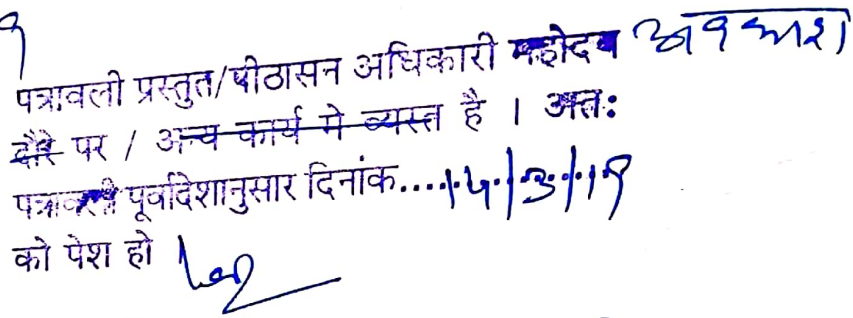 पत्रावली प्रस्तुत/पीठासन अधिकारी महोदय अवकाश
दौरे पर / अन्य कार्य मे व्यस्त है । अतः
पत्रावली पूर्वादेशानुसार दिनांक....14/3/19
को पेश हो